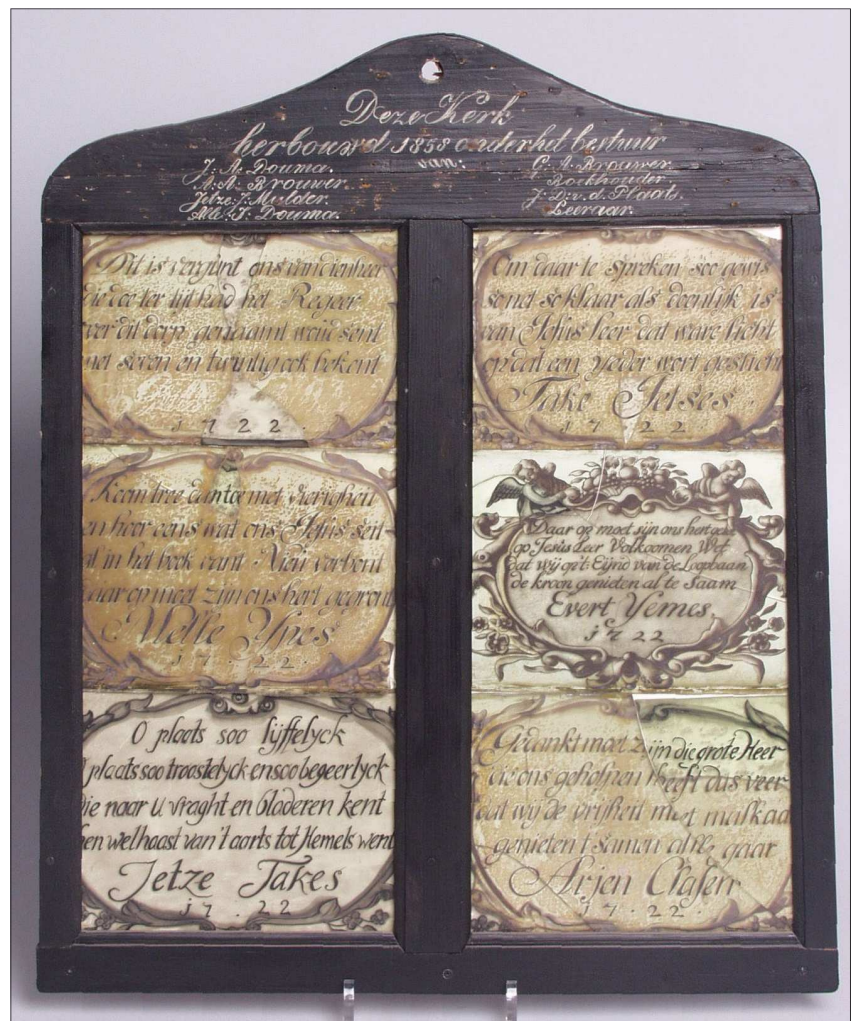 Deze Kerk
herbouwd 1858 onder het bestuur
van:
J: A: Douma.
A: A: Brouwer.
Jetze: J: Mulder.
J: Douma.
G: A: Brouwer.
Boekhouder
J: D: v. d. Plaats.
Leeraar.
Dit is vergunt ons van dien heer
die doe ter tijt had het Regeer
over dit dorp genaamt woud sent
met seven en twintig ook bekent
1722
Koom tree dan toe met vierigheit
en hoor eens wat ons Jesus seit
al in het boek vant Nieu verbont
daar op moet zijn ons hert gegront
Melle Ypes
1722.
O plaats soo lijffelyck
plaats soo troostelyck en soo begeerlyck
die naar u vraght en bladeren kent
en welhaast van't aarts tot Hemels went
Jetze Takes
17.22
Om daar te spreken soo gewis
so net so klaar als deenlijk is
van Jesus leer dat ware licht
op dat een yeder wort gesticht
Take Jetses
1722
Daar op moet sijn ons hert geset
op Jesus Leer Volkoomen Wet
dat wij op't Eijnd van de Loopbaan
de kroon genieten al te Saam
Evert Yemes
1722
Gedankt moet zijn die grote Heer
die ons geholpen heeft dus veer
dat wij de vrijheit met malkaa
genieten t samen alle gaar
Arjen Clasen
17.22.